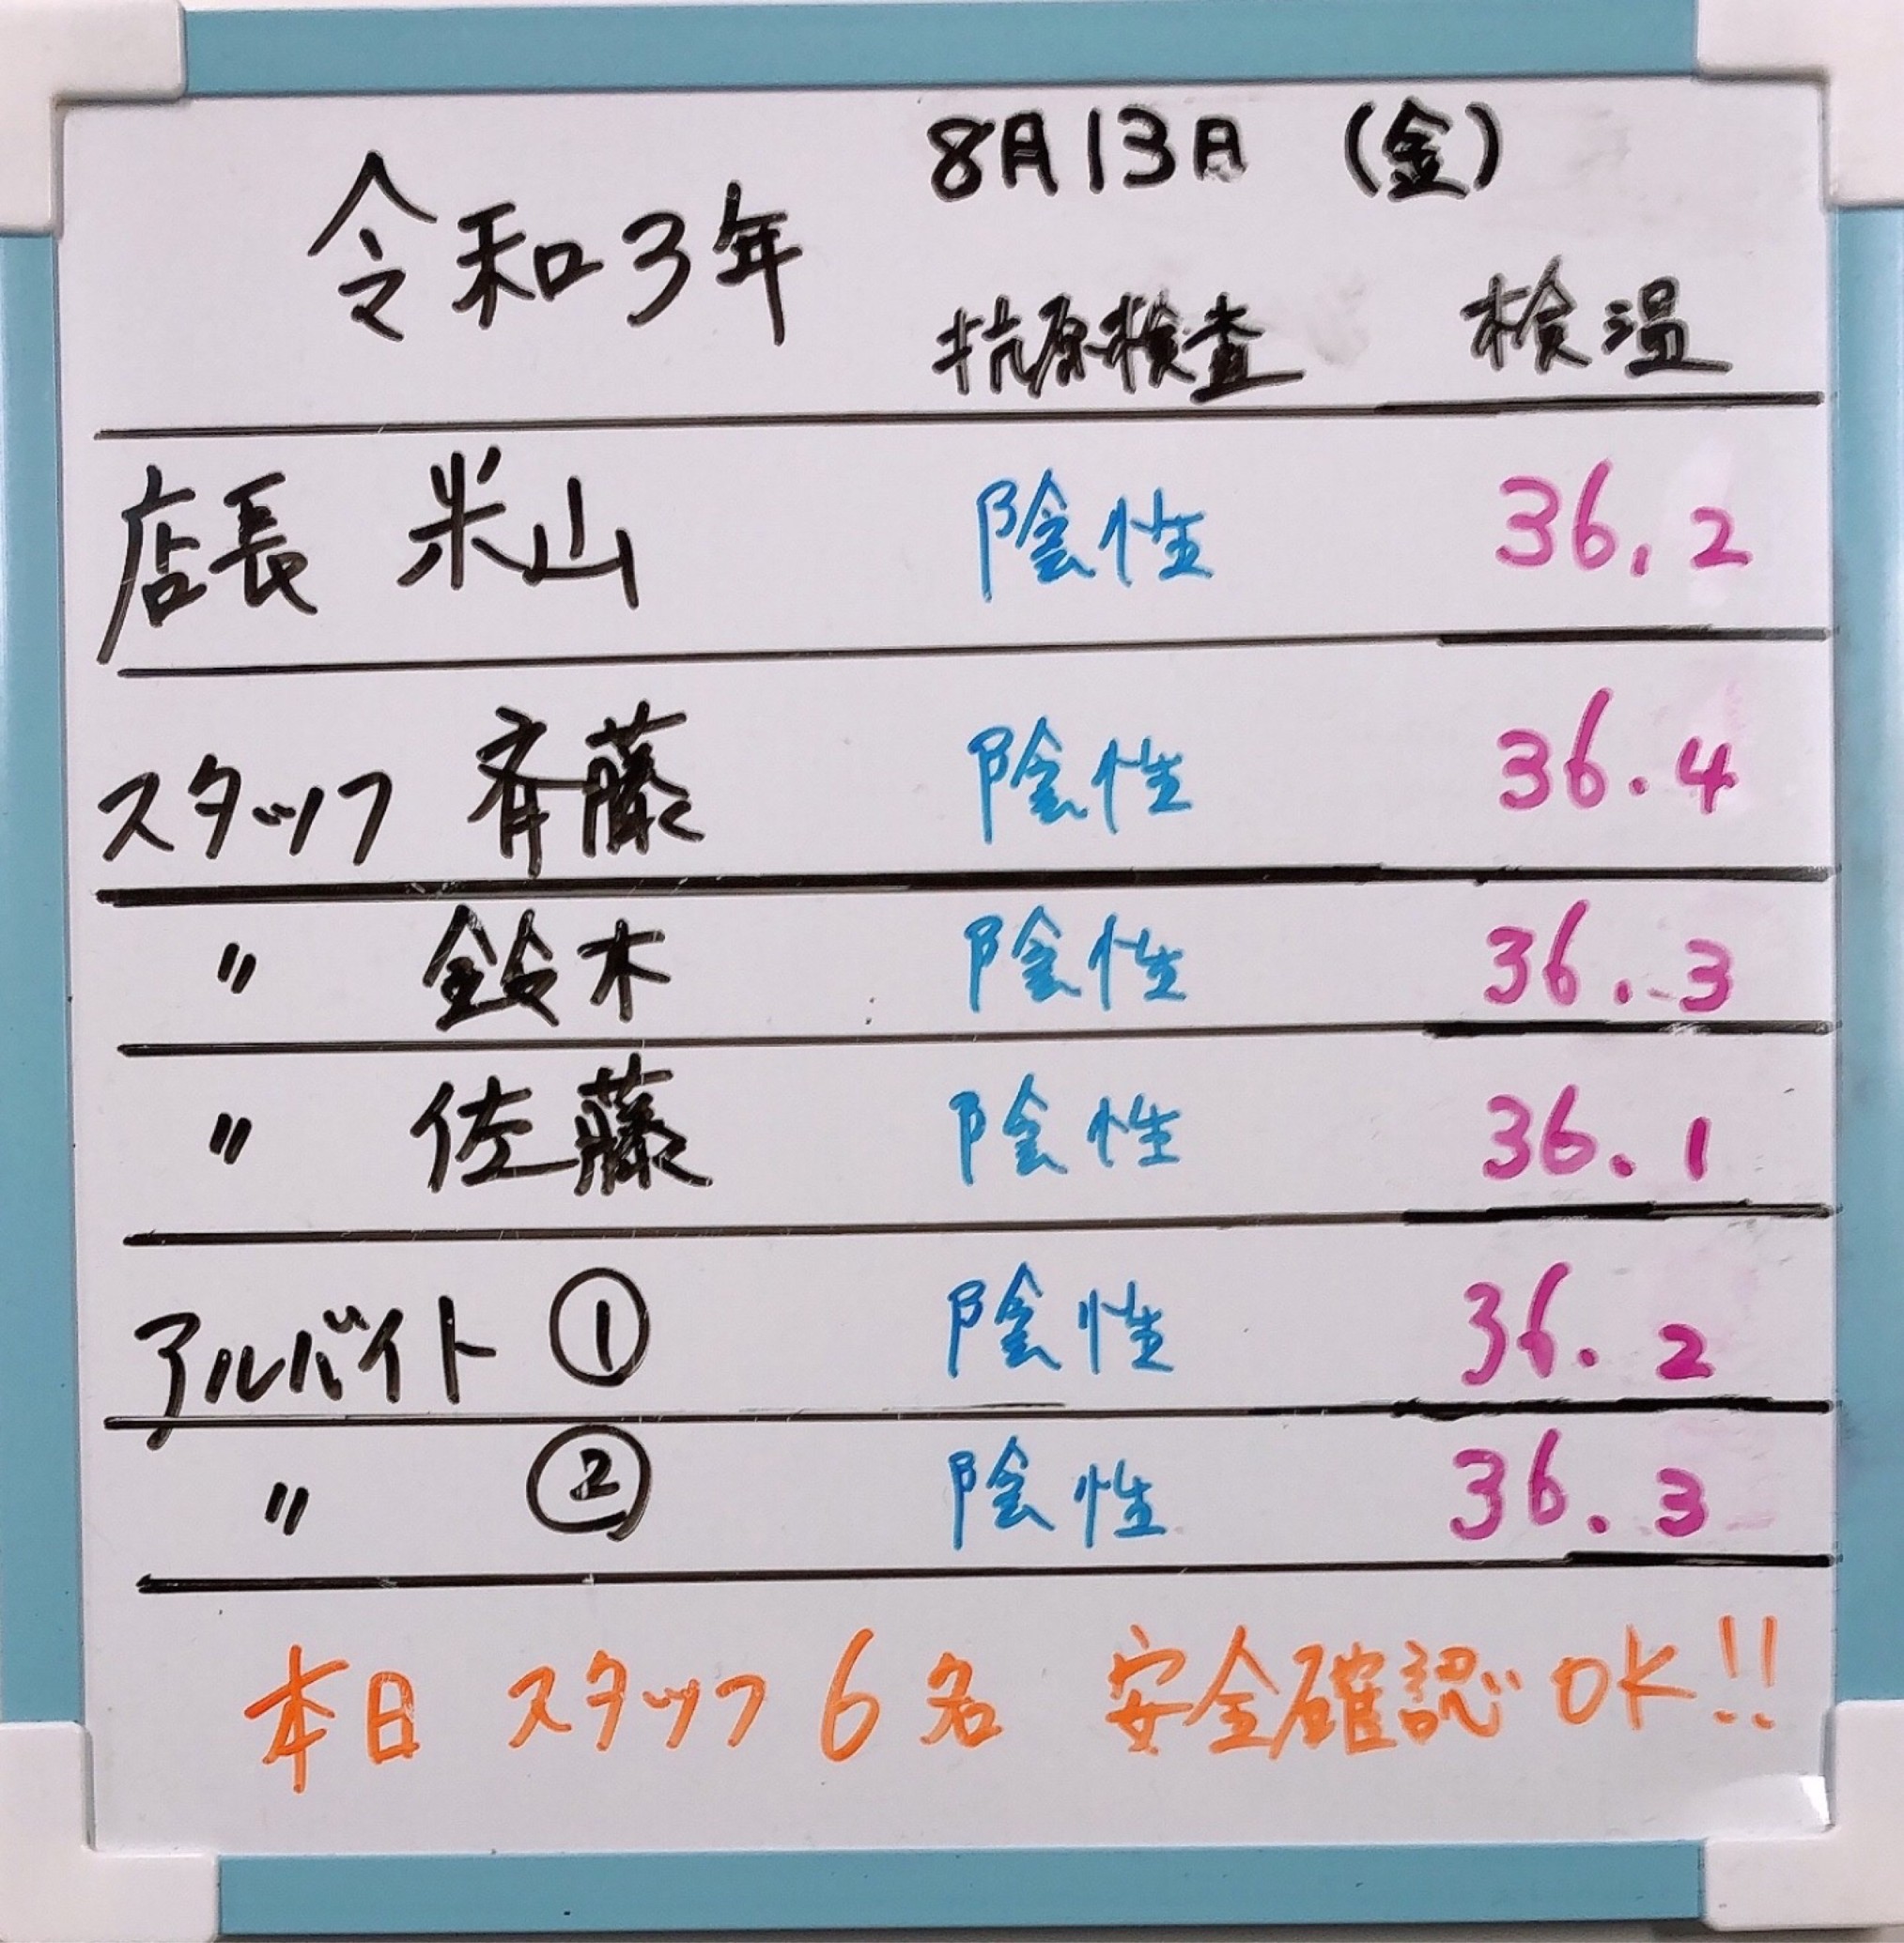 令和3年 8月13日 (金)
抗原検査 検温
店長 米山 陰性 36.2
スタッフ 斉藤 陰性 36.4
〃 鈴木 陰性 36.3
〃 佐藤 陰性 36.1
アルバイト ① 陰性 36.2
〃 ② 陰性 36.3
本日 スタッフ 6名 安全確認OK!!